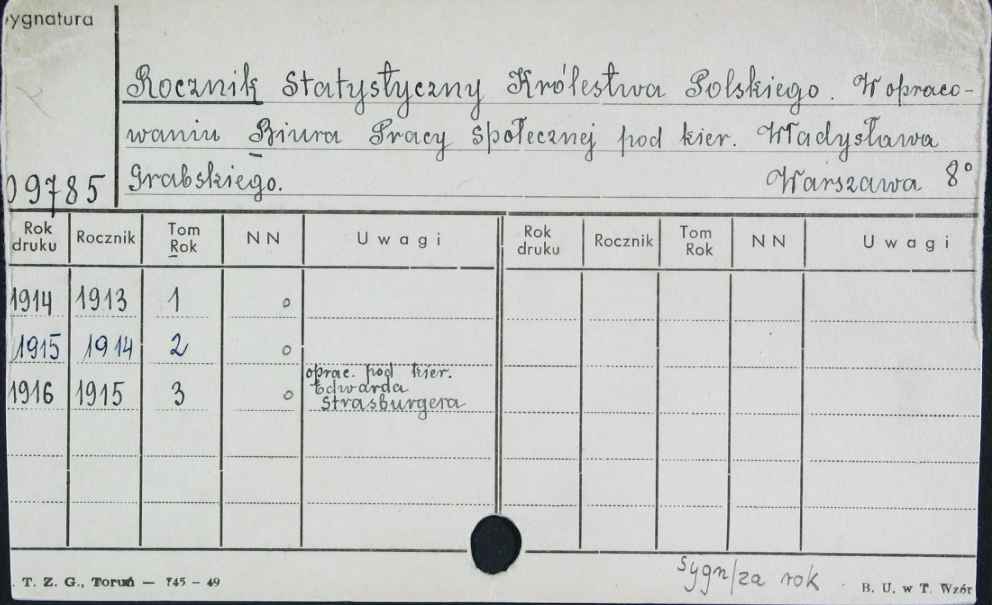 ygnatura
Rocznik Statystyczny Królestwa Polskiego. W opraco-
waniu Biura Pracy Społecznej pod kier. Władysława
Grabskiego. Warszawa 8°
09785
Rok druku Rocznik Tom Rok NN Uwagi Rok druku Rocznik Tom Rok NN Uwagi
1914 1913 1 o
1915 1914 2 o
1916 1915 3 o oprac. pod kier.
Edwarda
Strasburgera
sygn/za rok
. T. Z. G., Toruń — 745 – 49 B. U. w T. Wzór